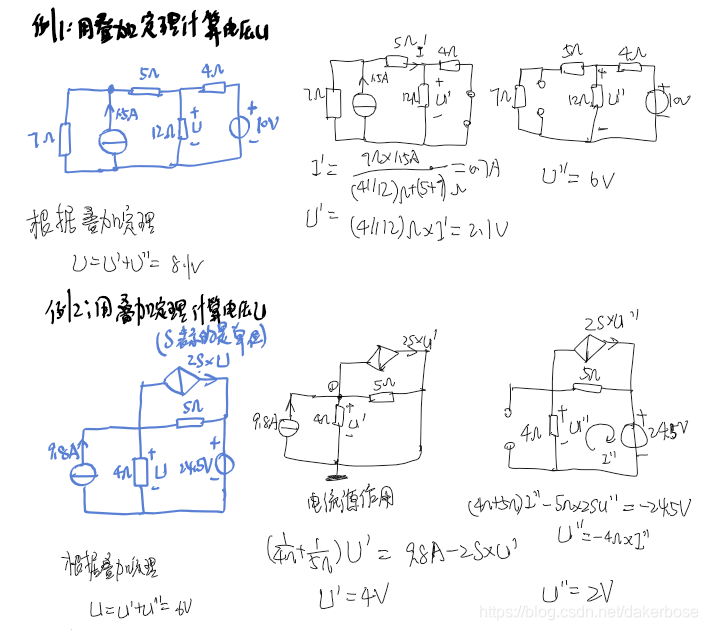 例1:用叠加定理计算电压U
5Ω 4Ω
1.5A
7Ω 12Ω + U - + 10V -
5Ω I' 4Ω
1.5A
7Ω 12Ω + U' -
5Ω 4Ω
7Ω 12Ω + U'' - + 10V
I' = 7Ω×1.5A / (4//12)Ω+(5+7)Ω = 0.7A
U' = (4//12)Ω×I' = 2.1V
U''= 6V
根据叠加定理
U=U'+U''= 8.1V
例2:用叠加定理计算电压U
(S表示的是单位)
2S×U
5Ω
9.8A
4Ω + U - + 24.5V -
2S×U'
① 5Ω
9.8A 4Ω + U' -
电流源作用
2S×U''
5Ω
4Ω + U'' - I'' + 24.5V -
(1/4Ω+1/5Ω)U' = 9.8A-2S×U'
U'= 4V
(4Ω+5Ω)I''-5Ω×2SU''=-24.5V
U''=-4Ω×I''
U''= 2V
根据叠加原理
U=U'+U''= 6V
https://blog.csdn.net/dakerbose